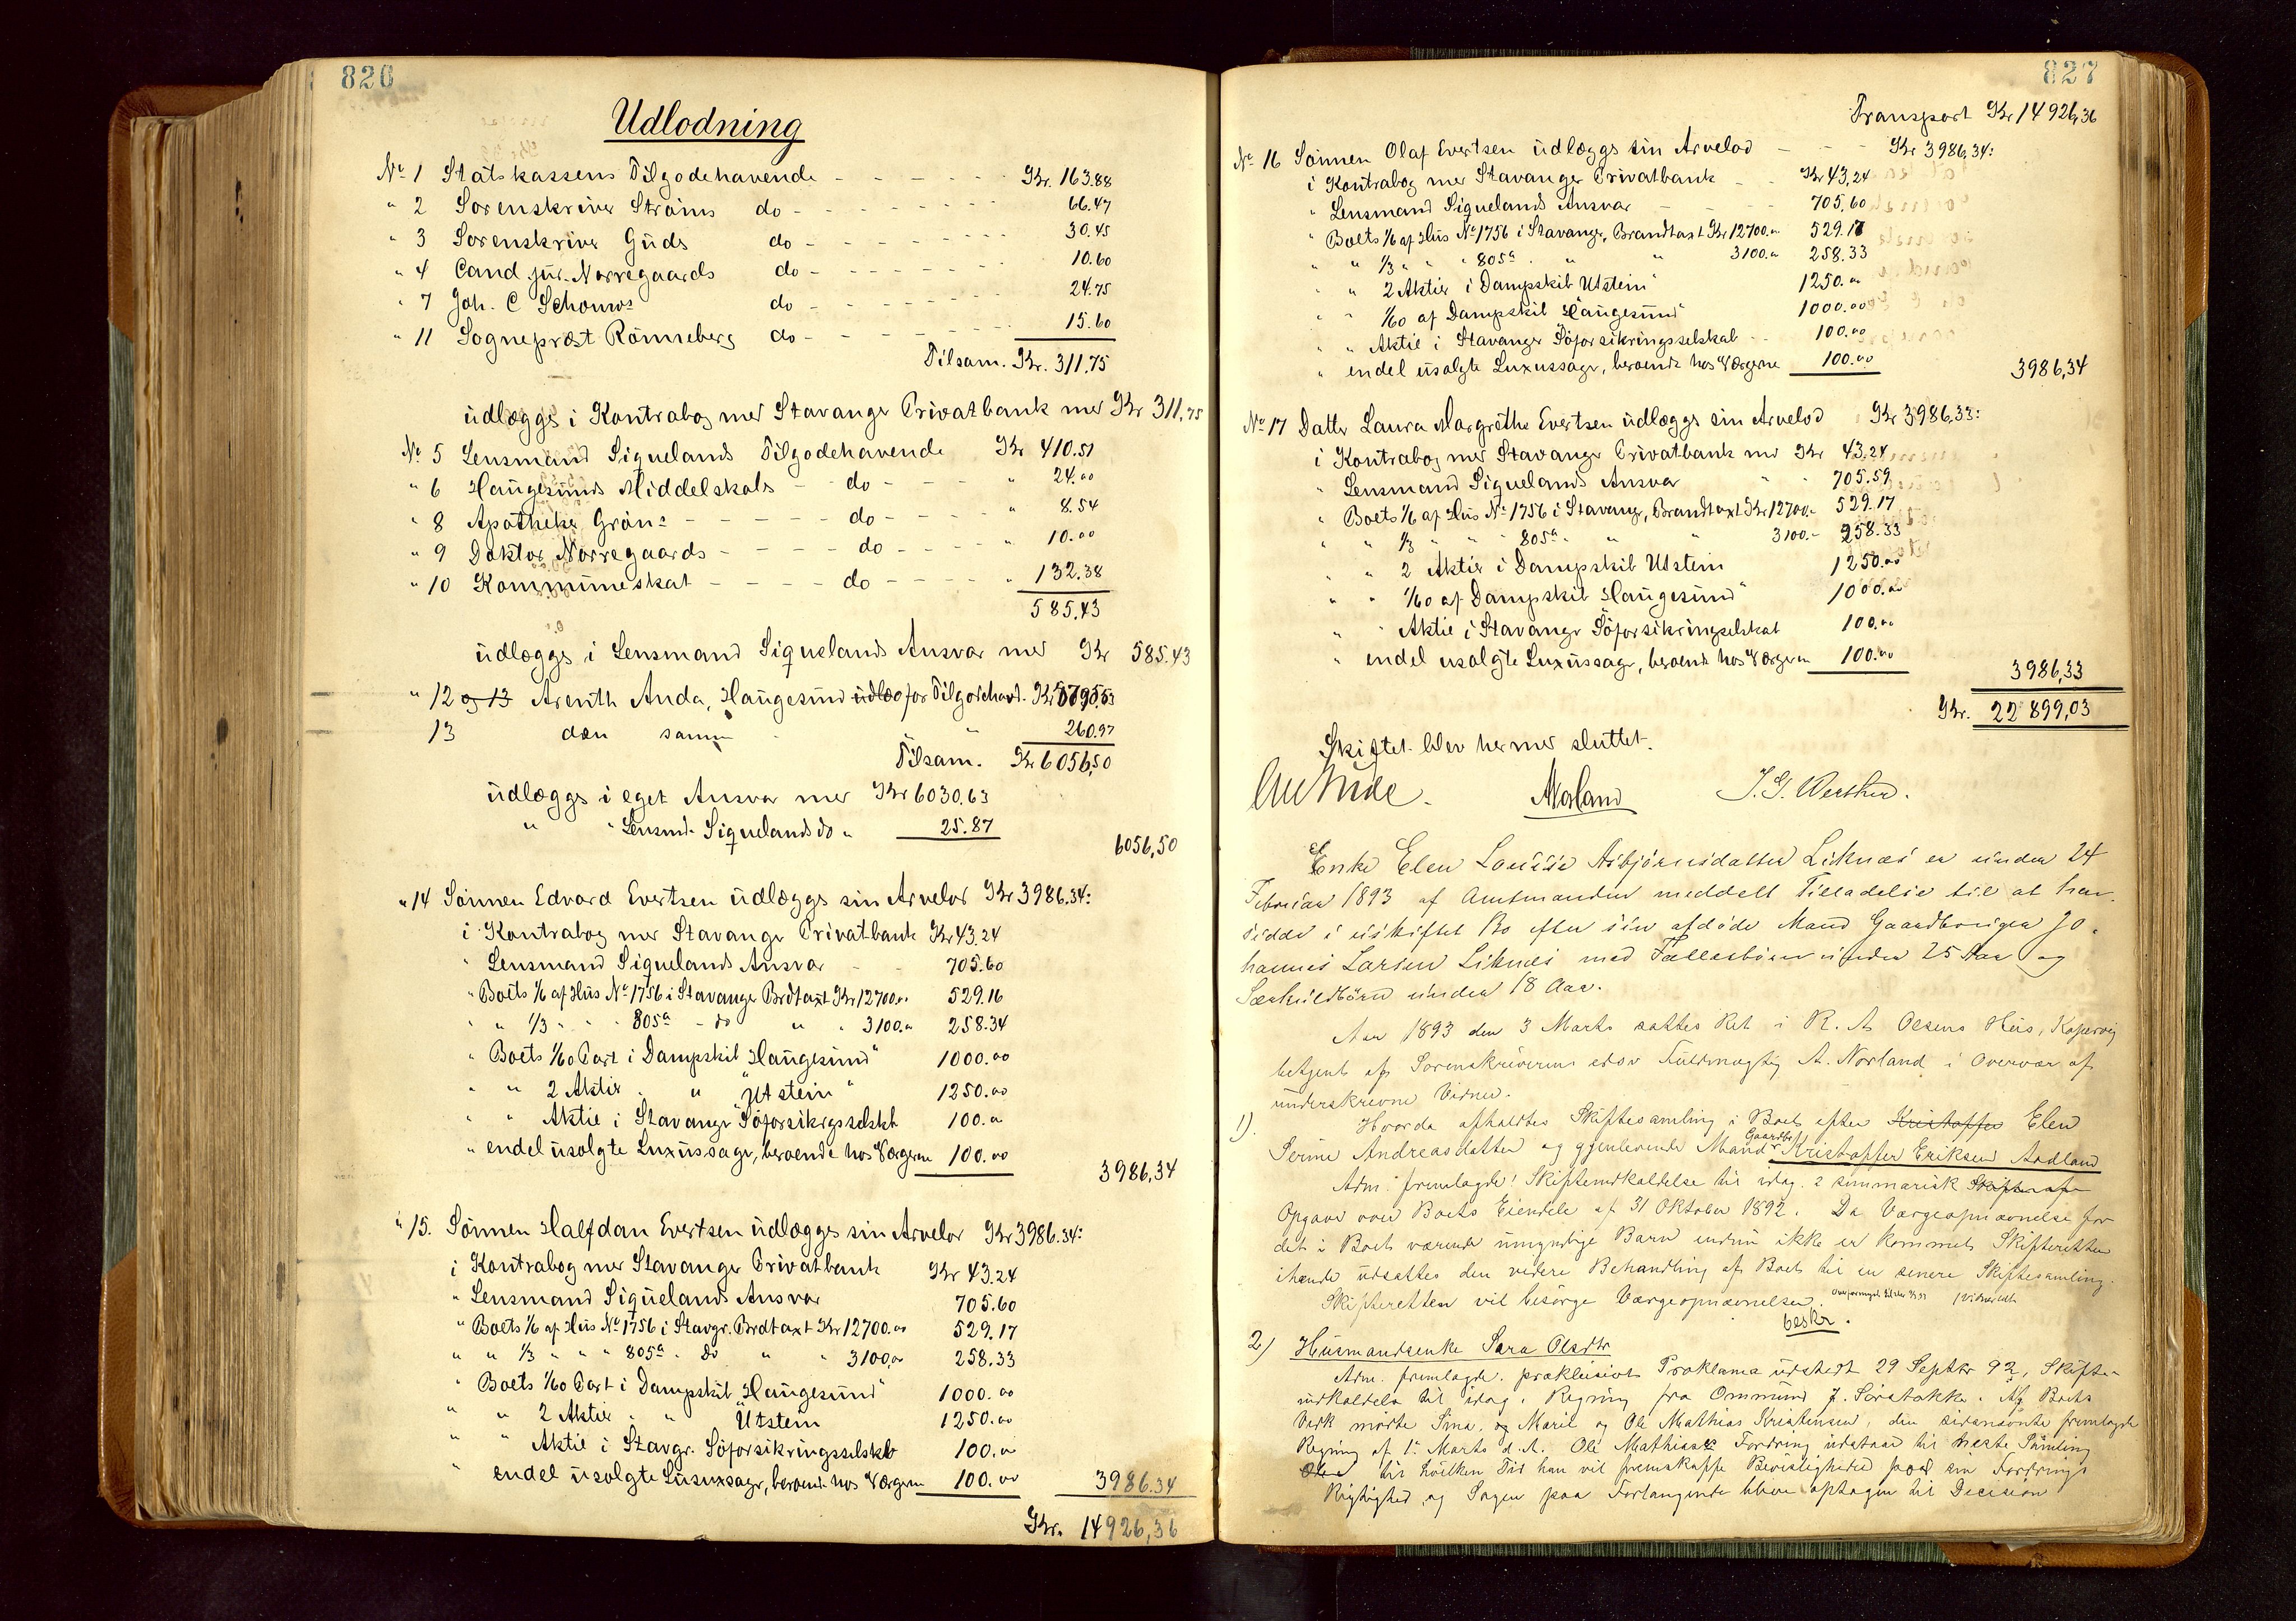 826
Udlodning
No 1 Statskassens Tilgodehavende - - - - - Kr. 163.88
" 2 Sorenskriver Ströms do - - - - - 66.47
" 3 Sorenskriver Güds do - - - - - 30.45
" 4 Cand jur. Norregaards do - - - - - 10.60
" 7 Joh. C Schouws do - - - - - 24.75
" 11 Sogneprest Rönneberg do - - - - - 15.60
Tilsam. Kr. 311,75
udlægges i Kontrabog med Stavanger Privatbank med Kr 311,75
No 5 Lensmand Siquelands Tilgodehavende Kr 410.51
" 6 Haugesunds Middelskols - do - - - " 24.00
" 8 Apotheker Gröns - - - - do - - - " 8.54
" 9 Doktor Norregaards - - - - do - - - " 10.00
" 10 Kommuneskat - - - - do - - - " 132.38
585,43
udlægges i Lensmand Siquelands Ansvar med Kr 585.43
" 12 og 13 Arenth Anda, Haugesund udlæg for Tilgodehavd. Kr 5795.53
13 den samme " 260.97
Tilsam. Kr 6056,50
udlægges i eget Ansvar med Kr 6030.63
" " Lensmd. Siquelands do " 25.87
6056,50
" 14 Sönnen Edvard Evertsen udlægges sin Arvelod Kr 3986.34:
i Kontrabog med Stavanger Privatbank Kr 43.24
" Lensmand Siquelands Ansvar - - 705.60
" Boets 1/6 af Hus No 1756 i Stavanger Brdtaxt Kr 12700.00 529.16
" " 1/3 " " " 805a - do " " 3100.00 258.34
" Boets 1/60 Part i Dampskib "Haugesund" 1000.00
" " 2 Aktier " " "Utstein" 1250.00
" " Aktie i Stavanger Söforsikrgsselskb 100.00
" endel usolgte Luxussager, beroende hos Værgerne 100.00
3986,34
" 15. Sönnen Halfdan Evertsen udlægges sin Arvelod Kr 3986.34:
i Kontrabog med Stavanger Privatbank Kr 43.24
" Lensmand Siquelands Ansvar 705.60
" Boets 1/6 af Hus No 1756 i Stavgr. Brdtaxt Kr 12700.00 529.17
" " 1/3 " " " 805a . Do " " 3100,00 258.33
" Boets 1/60 Part i Dampskib "Haugesund" 1000.00
" " 2 Aktier " " "Utstein 1250.00
" " Aktie i Stavgr. Söforsikringsselskb 100.00
" endel usolgte Lusuxsager, beroende hos Værgerne 100.00 3986.34
Kr. 14926,36
827
Transport Kr 14926,36
No 16 Sönnen Olaf Evertsen udlægges sin Arvelod - - - Kr 3986,34:
i Kontrabog med Stavanger Privatbank - - Kr 43,24
" Lensmand Siquelands Ansvar - - - 705,60
" Boets 1/6 af Hus No 1756 i Stavanger, Brandtaxt Kr 12700.00 529.17
" " 1/3 " " " 805a . " " 3100.00 258.33
" " 2 Aktier i Dampskib "Utstein" 1250.00
" " 1/60 af Dampskib "Haugesund" 1000.00
" " Aktie i Stavanger Söforsikringsselskab - - 100.00
" endel usolgte Luxussager, beroende hos Værgerne 100.00 3986,34
No 17 Datter Laura Margrethe Evertsen udlægges sin Arvelod Kr 3986,33:
i Kontrabog med Stavanger Privatbank med Kr 43,24
" Lensmand Siquelands Ansvar " " 705.59
" Boets 1/6 af Hus No 1756 i Stavanger, Brandtaxt Kr 12700.- 529.17
" " 1/3 " " " 805a . " " 3100.- 258.33
" " 2 Aktier i Dampskib Utstein 1250.00
" " 1/60 af Dampskib "Haugesund" 1000.00
" " Aktie i Stavanger Söforsikringselskab 100.00
" endel usolgte Luxussager, beroende hos Værgerne 100.00
3986,33
Kr. 22 899,03
Skiftet blev hermed sluttet.
Norland
Enke Elen Lovise Asbjörnsdatter Liknæs er under 24
Februar 1893 af Amtmanden meddelt Tilladelse til at hen-
sidde i uskiftet Bo efter sin afdöde Mand Gaardbruger Jo-
hannes Larsen Liknæs med Fællesbörn under 25 Aar og
Særkuldbörn under 18 Aar.
Aar 1893 den 3 Marts sattes Ret i R. A. Olsens Hus, Kopervig
betjent af Sorenskriverens edsv Fuldmægtig A. Norland i Overvær af
underskrevne Vidner.
1). Hvorda afholdtes Skiftesamling i Boet efter Kristoffer Elen
Serine Andreasdatter og gjenlevende Mand Gaardbr. Kristoffer Eriksen Aadland
Adm. fremlagde! Skifteindkaldelse til idag. 2 summarisk Skifte af
Opgave over Boets Eiendele af 31 Oktober 1892. Da Værgeopnævnelse for
det i Boet værende umyndige Barn endnu ikke er kommet Skifteretten
ihænde udsattes den videre Behandling af Boet til en senere Skiftesamling.
Skifteretten vil besörge Værgeopnævnelsen.
beskr.
2) Husmandsenke Sara Olsdtr
Adm. fremlagde. præklusivt Proklama udstedt 29 Septbr 92, Skifte-
indkaldelse til idag. Regning fra Ommund J. Sörstokke. Af Boets
Vedk mödte Sina, og Marie og Ole Mathias Kristensen, den sidsnævnte fremlagde
Regning af 1. Marts d. A. Ole Mathias's Fordring udstaar til næste Samling
til hvilken Tid han vil fremskaffe Bevisligheder paa sin Fordrings
Rigtighed og Sagen paa Forlangende blive optagen til Decision